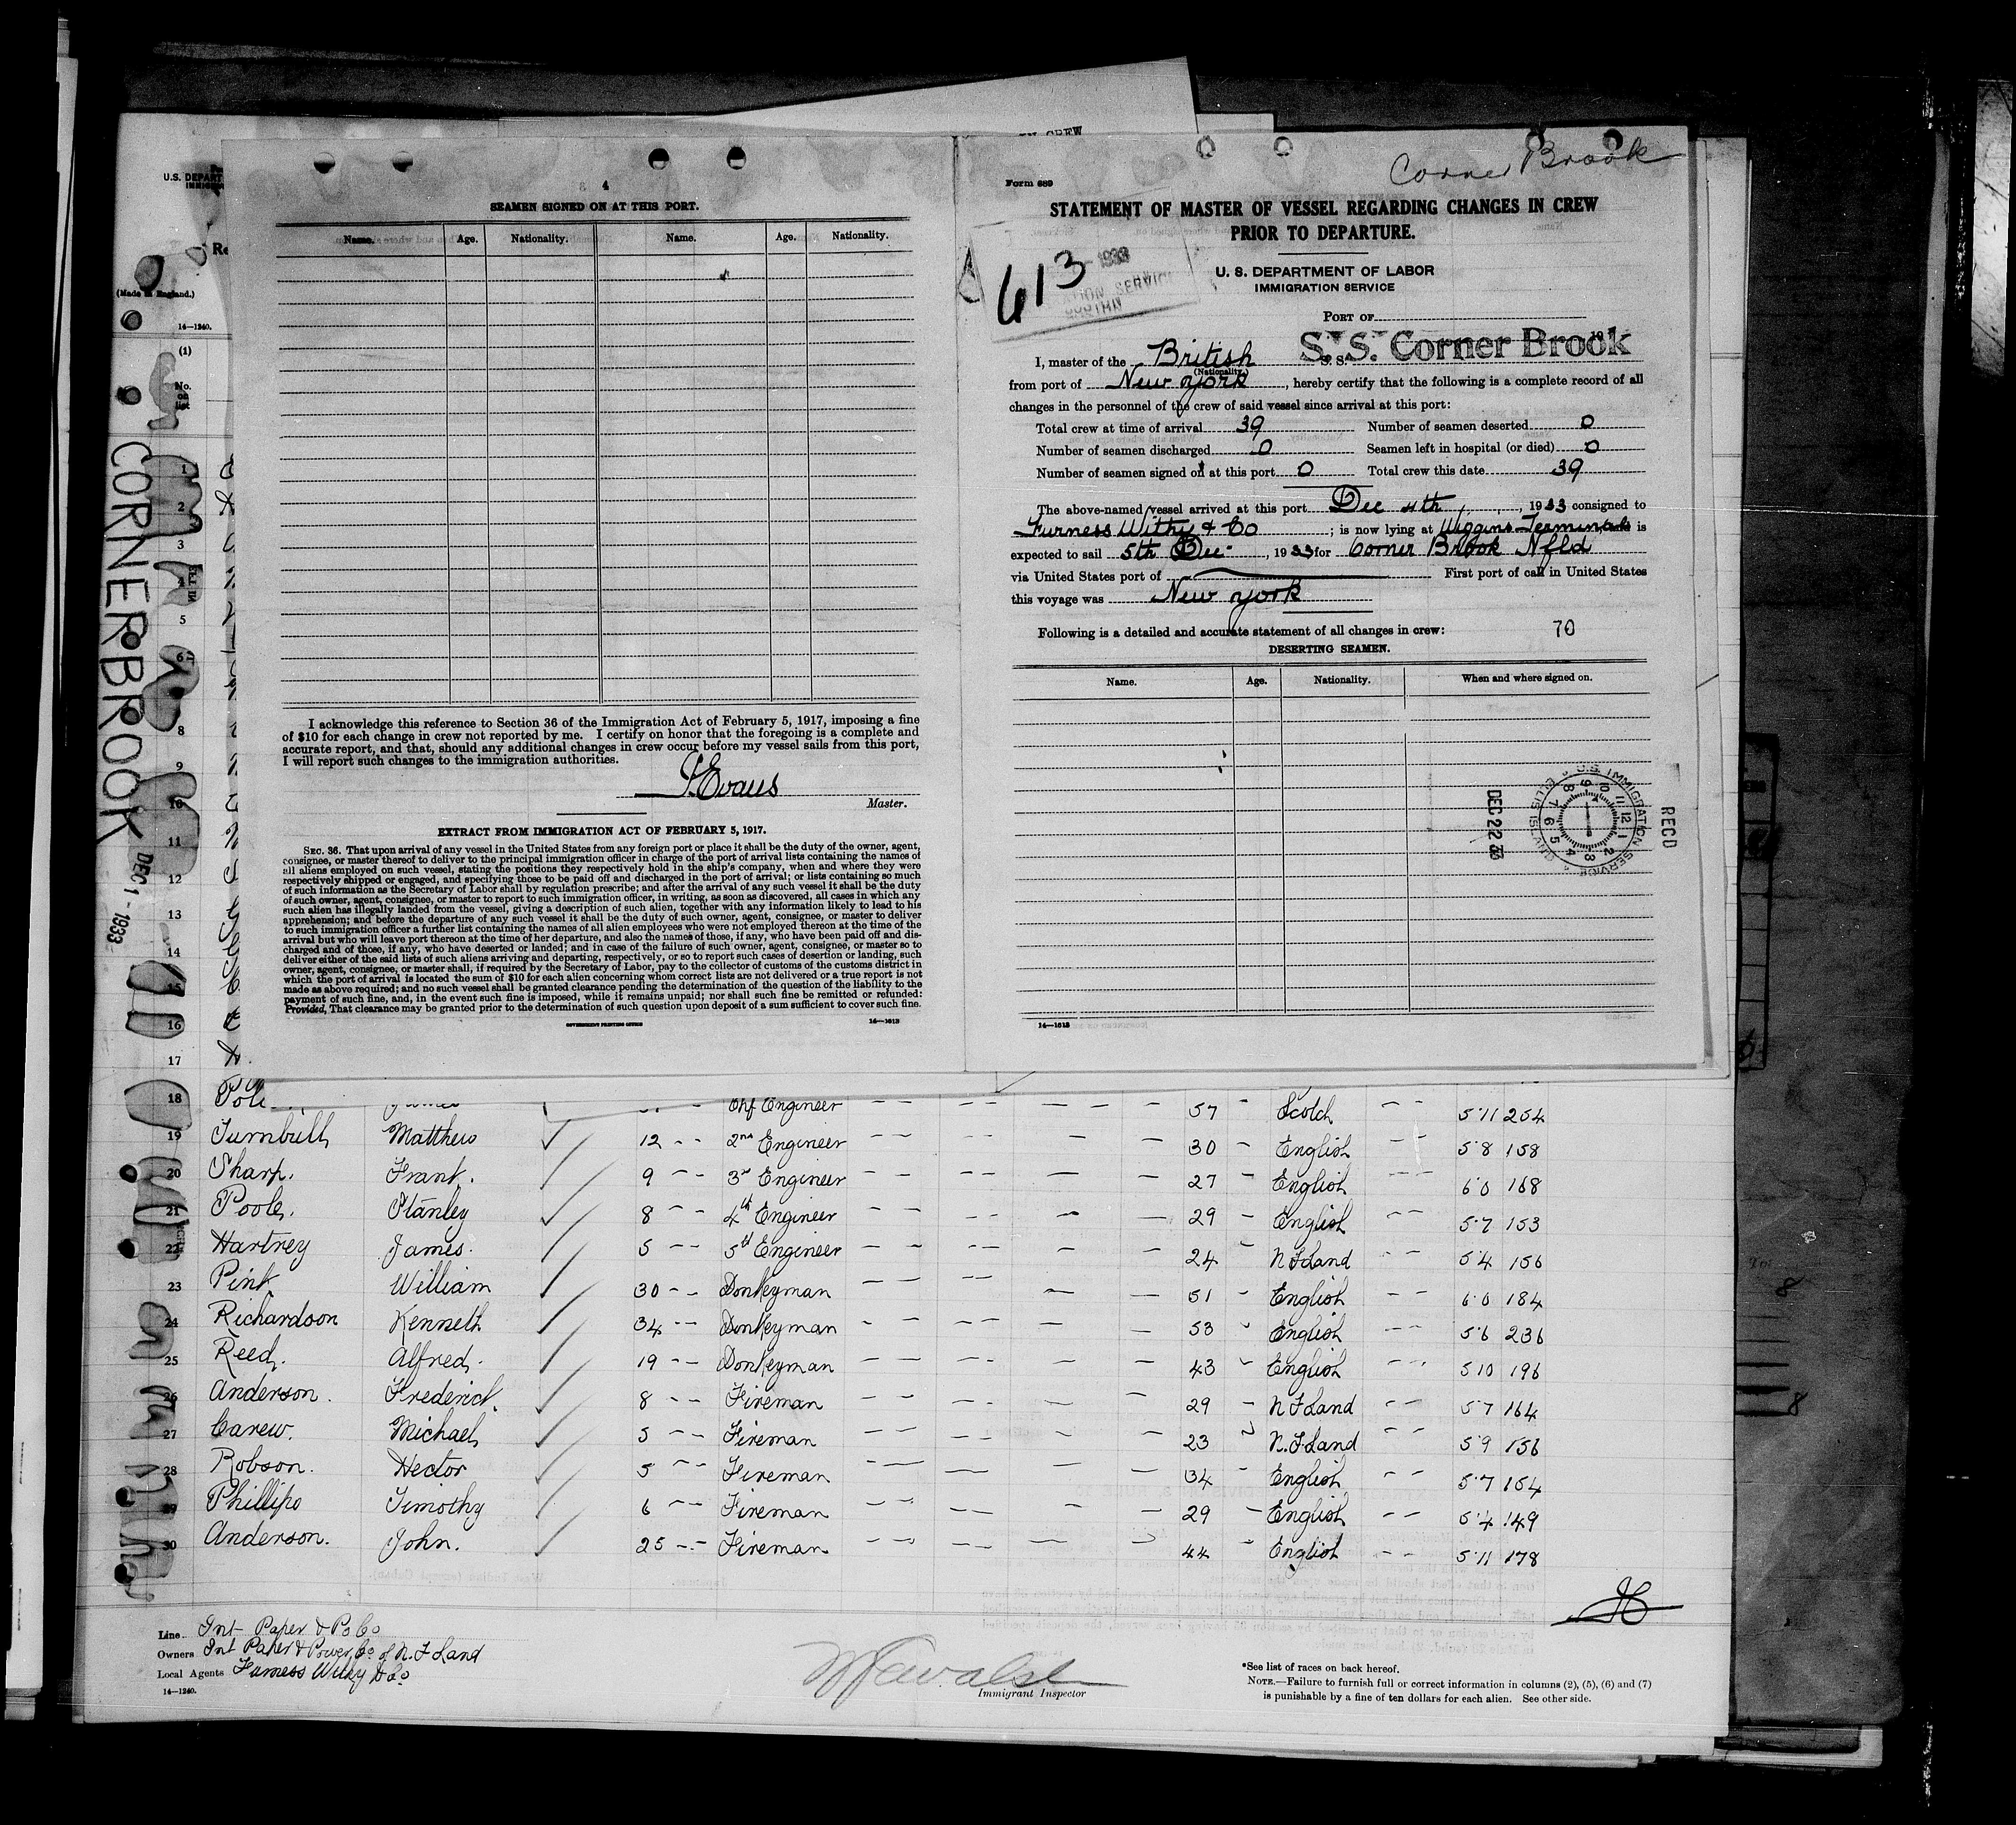 IN CREW
U.S. DEPART
(Made in England.)
14—1240.
(1)
No.
on
list
CORNERBROOK
DEC 1 - 1933
1
2
3
4
5
6
8
9
10
11
12
13
14
15
16
17
4
SEAMEN SIGNED ON AT THIS PORT.
Name. Age. Nationality. Name. Age. Nationality.
I acknowledge this reference to Section 36 of the Immigration Act of February 5, 1917, imposing a fine
of $10 for each change in crew not reported by me. I certify on honor that the foregoing is a complete and
accurate report, and that, should any additional changes in crew occur before my vessel sails from this port,
I will report such changes to the immigration authorities.
J. Evans
Master.
EXTRACT FROM IMMIGRATION ACT OF FEBRUARY 5, 1917.
SEC. 36. That upon arrival of any vessel in the United States from any foreign port or place it shall be the duty of the owner, agent,
consignee, or master thereof to deliver to the principal immigration officer in charge of the port of arrival lists containing the names of
all aliens employed on such vessel, stating the positions they respectively hold in the ship's company, when and where they were
respectively shipped or engaged, and specifying those to be paid off and discharged in the port of arrival; or lists containing so much
of such information as the Secretary of Labor shall by regulation prescribe; and after the arrival of any such vessel it shall be the duty
of such owner, agent, consignee, or master to report to such immigration officer, in writing, as soon as discovered, all cases in which any
such alien has illegally landed from the vessel, giving a description of such alien, together with any information likely to lead to his
apprehension; and before the departure of any such vessel it shall be the duty of such owner, agent, consignee, or master to deliver
to such immigration officer a further list containing the names of all alien employees who were not employed thereon at the time of the
arrival but who will leave port thereon at the time of her departure, and also the names of those, if any, who have been paid off and dis-
charged and of those, if any, who have deserted or landed; and in case of the failure of such owner, agent, consignee, or master so to
deliver either of the said lists of such aliens arriving and departing, respectively, or so to report such cases of desertion or landing, such
owner, agent, consignee, or master shall, if required by the Secretary of Labor, pay to the collector of customs of the customs district in
which the port of arrival is located the sum of $10 for each alien concerning whom correct lists are not delivered or a true report is not
made as above required; and no such vessel shall be granted clearance pending the determination of the question of the liability to the
payment of such fine, and, in the event such fine is imposed, while it remains unpaid; nor shall such fine be remitted or refunded:
Provided, That clearance may be granted prior to the determination of such question upon deposit of a sum sufficient to cover such fine.
GOVERNMENT PRINTING OFFICE 14—1613
Corner Brook
Form 689
STATEMENT OF MASTER OF VESSEL REGARDING CHANGES IN CREW
PRIOR TO DEPARTURE.
613
U. S. DEPARTMENT OF LABOR
IMMIGRATION SERVICE
PORT OF
I, master of the British S. S. S. S. Corner Brook
(Nationality.)
from port of New York, hereby certify that the following is a complete record of all
changes in the personnel of the crew of said vessel since arrival at this port:
Total crew at time of arrival 39 Number of seamen deserted 0
Number of seamen discharged 0 Seamen left in hospital (or died) 0
Number of seamen signed on at this port 0 Total crew this date 39
The above-named vessel arrived at this port Dec 4th, 1933 consigned to
Furness Withy & Co; is now lying at Wiggins Terminals is
expected to sail 5th Dec, 1933 for Corner Brook Nfld
via United States port of First port of call in United States
this voyage was New York
Following is a detailed and accurate statement of all changes in crew: 70
DESERTING SEAMEN.
Name. Age. Nationality. When and where signed on.
RECD
U.S. IMMIGRATION SERVICE ELLIS ISL
DEC 22 33
14—1613
18 Chf Engineer 57 Scotch 5·11 254
19 Turnbull Matthew 12 2nd Engineer 30 English 5·8 158
20 Sharp. Frank. 9 3rd Engineer 27 English 6·0 168
21 Poole. Stanley 8 4th Engineer 29 English 5·7 153
22 Hartrey James. 5 5th Engineer 24 N F Land 5·4 156
23 Pink William 30 Donkeyman 51 English 6·0 184
24 Richardson Kenneth 34 Donkeyman 53 English 5·6 236
25 Reed. Alfred. 19 Donkeyman 43 English 5 10 196
26 Anderson. Frederick. 8 Fireman 29 N F Land 5·7 164
27 Carew. Michael 5 Fireman 23 N. F. Land 5·9 156
28 Robson. Hector 5 Fireman 34 English 5·7 154
29 Phillips Timothy 6 Fireman 29 English 5·4 149
30 Anderson. John. 25 Fireman 44 English 5·11 178
Line Int Paper & Po Co
Owners Int Paper & Power Co of N. F Land
Local Agents Furness Withy & Co
14—1240.
Immigrant Inspector
*See list of races on back hereof.
NOTE.—Failure to furnish full or correct information in columns (2), (5), (6) and (7)
is punishable by a fine of ten dollars for each alien. See other side.